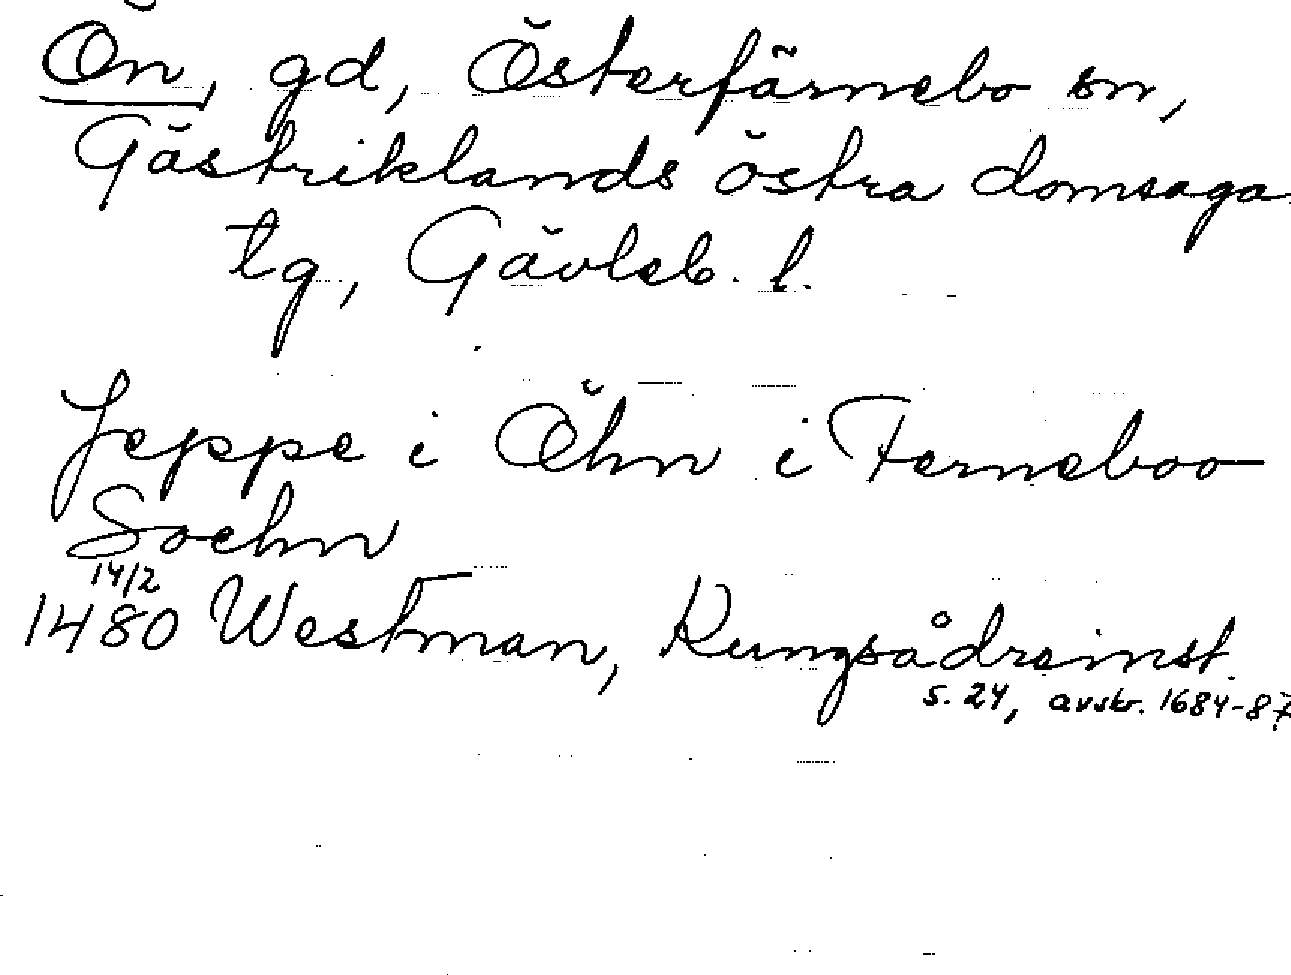 Ön, gd, Österfärnebo sn,
Gästriklands östra domsaga
tg, Gävleb. l.
Jeppe i Öhn i Ferneboo
Sochn
14/2
1480 Westman, Kungsådreinst.
s. 24, avskr. 1684-87